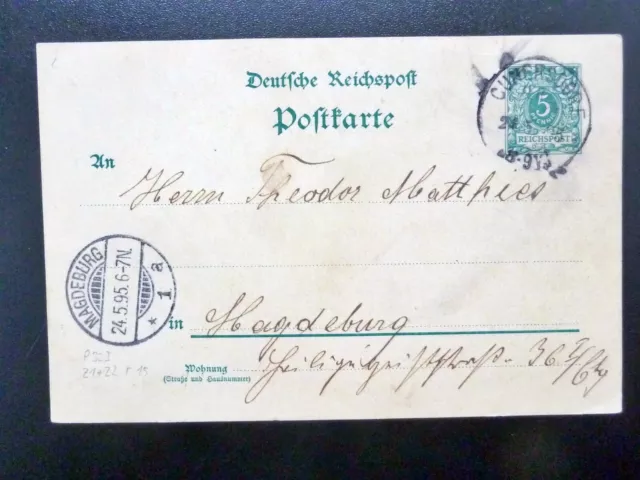 Deutsche Reichspost
Postkarte
CUNERSDORF
5
24 5
REICHSPOST
8-9V
An
Herrn Theodor Matthies
MAGDEBURG
24.5.95.6-7N.
* 1 a
in
Magdeburg
Wohnung
(Straße und Hausnummer)
Heiligegeiststraße 36
21+22